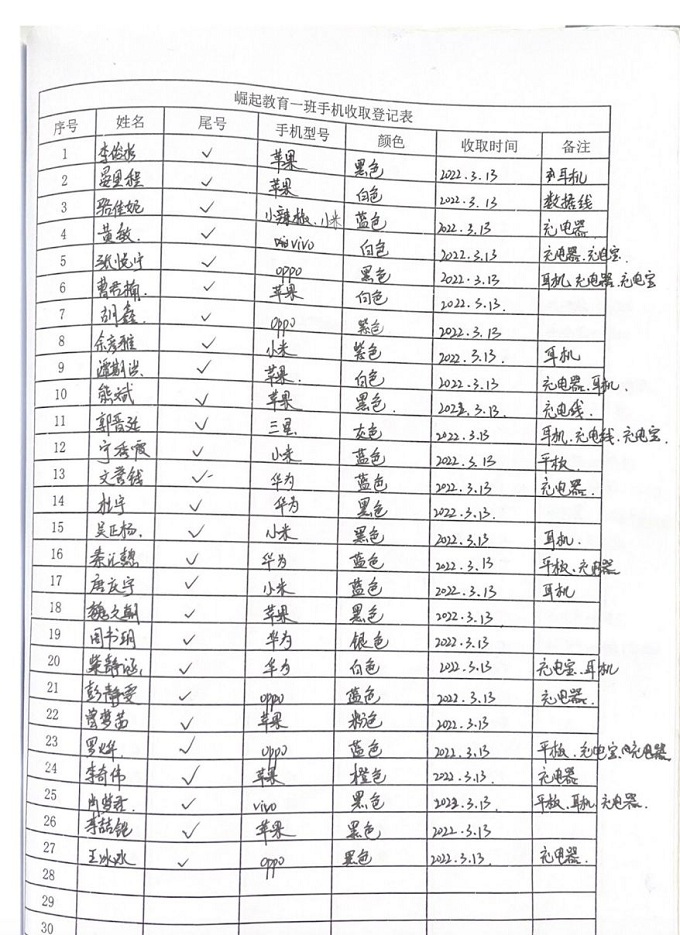 崛起教育一班手机收取登记表
序号 姓名 尾号 手机型号 颜色 收取时间 备注
1 李俊彬 ✓ 苹果 黑色 2022.3.13 耳机
2 ✓ 苹果 白色 2022.3.13 数据线
3 骆佳妮 ✓ 小辣椒、小米 蓝色 2022.3.13 充电器
4 黄敏. ✓ vivo 白色 2022.3.13 充电器、充电宝.
5 张悦 ✓ oppo 黑色 2022.3.13 耳机、充电器、充电宝
6 曹 ✓ 苹果 白色 2022.3.13.
7 胡鑫. ✓ oppo 紫色 2022.3.13
8 余彦雅 ✓ 小米 紫色 2022.3.13. 耳机
9 ✓ 苹果. 白色 2022.3.13 充电器、耳机.
10 熊斌 ✓ 苹果 黑色. 2022.3.13. 充电线.
11 郭晋廷 ✓ 三星 灰色 2022.3.13 耳机、充电线、充电宝.
12 宁 霞 ✓ 小米 蓝色 2022.3.13 平板.
13 文 ✓ 华为 蓝色 2022.3.13 充电器.
14 杜宇 ✓ 华为 黑色 2022.3.13.
15 吴正杨. ✓ 小米 黑色 2022.3.13 耳机.
16 秦 ✓ 华为 蓝色 2022.3.13 平板、充电器
17 唐庆宇 ✓ 小米 蓝色 2022.3.13 耳机
18 魏文朝 ✓ 苹果 黑色 2022.3.13
19 周书玥 ✓ 华为 银色 2022.3.13
20 柴静涵 ✓ 华为 白色 2022.3.13 充电宝、耳机
21 彭静雯 ✓ oppo 蓝色 2022.3.13 充电器.
22 曾梦茜 ✓ 苹果 粉色 2022.3.13
23 罗 ✓ oppo 蓝色 2022.3.13 平板、充电宝、充电器
24 李奇伟 ✓ 苹果 橙色 2022.3.13 充电器
25 肖 ✓ vivo 黑色 2022.3.13 平板、耳机、充电器.
26 李喆锟 ✓ 苹果 黑色 2022.3.13
27 王冰冰 ✓ oppo 黑色 2022.3.13. 充电器.
28
29
30